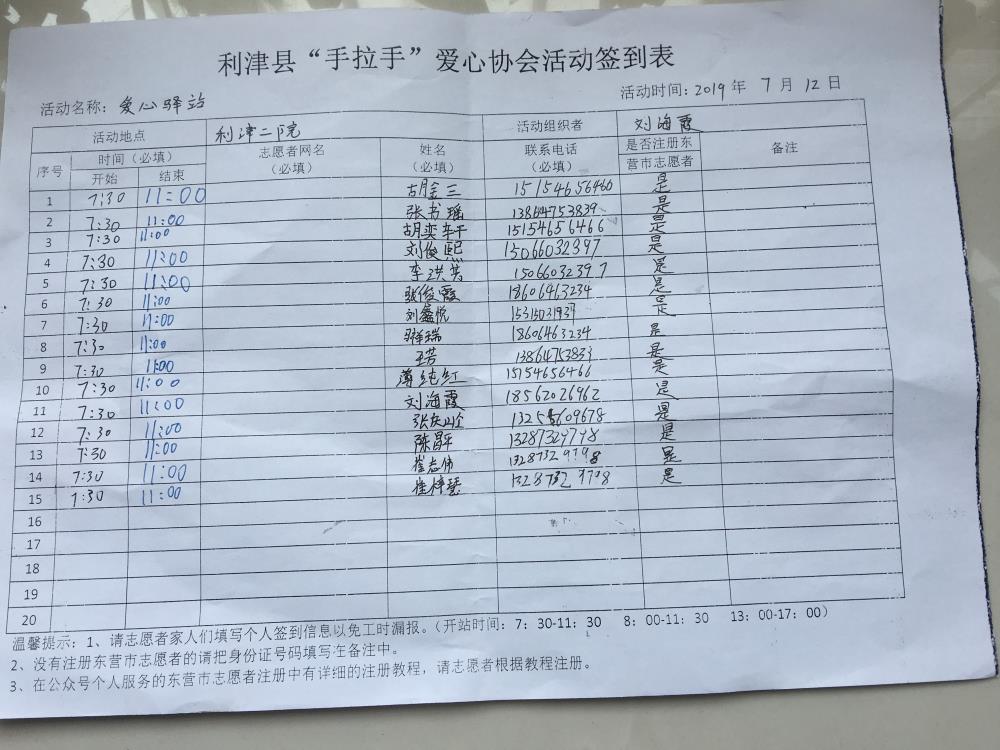 利津县“手拉手”爱心协会活动签到表
活动名称：爱心驿站 活动时间：2019年 7月 12日
活动地点 利津二院 活动组织者 刘海霞
序号 时间（必填） 志愿者网名（必填） 姓名（必填） 联系电话（必填） 是否注册东营市志愿者 备注
开始 结束
1 7:30 11:00 胡金三 15154656460 是
2 7:30 11:00 张书瑶 13864753839 是
3 7:30 11:00 胡奕 15154656466 是
4 7:30 11:00 刘俊熙 15066032397 是
5 7:30 11:00 李洪英 15066032397 是
6 7:30 11:00 张俊霞 18606463234 是
7 7:30 11:00 刘鑫悦 15315031937 是
8 7:30 11:00 18606463234 是
9 7:30 11:00 王芳 13864753833 是
10 7:30 11:00 薄纯红 15154656466 是
11 7:30 11:00 刘海霞 18562026962 是
12 7:30 11:00 是
13 7:30 11:00 陈昌平 是
14 7:30 11:00 崔志伟 是
15 7:30 11:00 崔梓瑟 是
16
17
18
19
20
温馨提示：1、请志愿者家人们填写个人签到信息以免工时漏报。（开站时间：7：30-11：30 8：00-11：30 13：00-17：00）
2、没有注册东营市志愿者的请把身份证号码填写在备注中。
3、在公众号个人服务的东营市志愿者注册中有详细的注册教程，请志愿者根据教程注册。